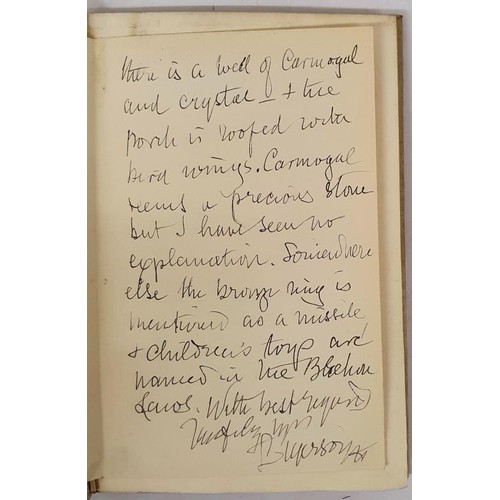 there is a bed of Carmogal
and crystal – & the
porch is roofed with
bird wings. Carmogal
seems a precious stone
but I have seen no
explanation. Somewhere
else the bronze ring is
mentioned as a missile
& children's toys are
named in the Brehon
Laws. With best regards